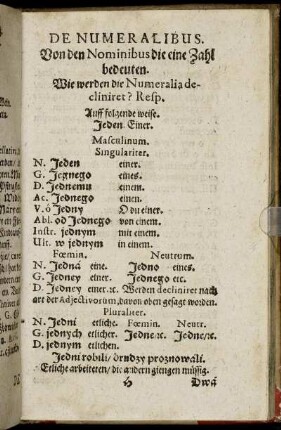 DE NUMERALIBUS.
Von den Nominibus die eine Zahl
bedeuten.
Wie werden die Numeralia de-
cliniret? Resp.
Auff folgende weise.
Jeden Einer.
Masculinum.
Singulariter.
N. Jeden einer.
G. Jegnego eines.
D. Jednemu einem.
Ac. Jednego einen.
V. ó Jedny O du einer.
Abl. od Jednego von einem.
Instr. jednym mit einem.
Ult. w jednym in einem.
Fœmin. Neutrum.
N. Jedná eine. Jedno eines.
G. Jedney einer. Jednego etc.
D. Jedney einer.ꝛc. Werden decliniret nach
art der Adjectivorum, davon oben gesagt worden.
Pluraliter.
N. Jedni etliche. Fœmin. Neutr.
G. jednych etlicher. Jedne ꝛc. Jedne/ꝛc.
D. jednym etlichen.
Jedni robili/ drudzy proznowali.
Etliche arbeiteten/ die andern giengen müssig.
H Dwá